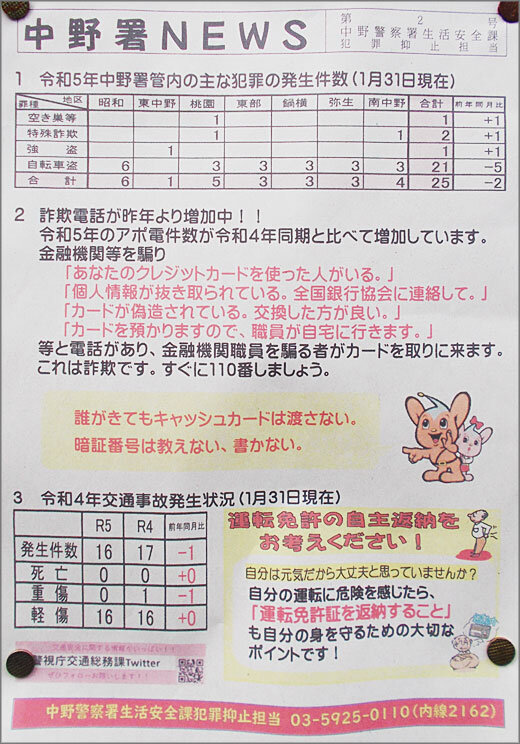 中野署NEWS
第 2 号
中野警察署生活安全課
犯罪抑止担当
1 令和5年中野署管内の主な犯罪の発生件数(1月31日現在)
罪種 地区 昭和 東中野 桃園 東部 鍋横 弥生 南中野 合計 前年同月比
空き巣等 1 1 +1
特殊詐欺 1 1 2 +1
強盗 1 1 +1
自転車盗 6 3 3 3 3 3 21 -5
合計 6 1 5 3 3 3 4 25 -2
2 詐欺電話が昨年より増加中!!
令和5年のアポ電件数が令和4年同期と比べて増加しています。
金融機関等を騙り
「あなたのクレジットカードを使った人がいる。」
「個人情報が抜き取られている。全国銀行協会に連絡して。」
「カードが偽造されている。交換した方が良い。」
「カードを預かりますので、職員が自宅に行きます。」
等と電話があり、金融機関職員を騙る者がカードを取りに来ます。
これは詐欺です。すぐに110番しましょう。
誰がきてもキャッシュカードは渡さない。
暗証番号は教えない、書かない。
3 令和4年交通事故発生状況(1月31日現在)
R5 R4 前年同月比
発生件数 16 17 -1
死亡 0 0 +0
重傷 0 1 -1
軽傷 16 16 +0
交通安全に関する情報がいっぱい!!
警視庁交通総務課Twitter
ぜひフォローお願いします!!
運転免許の自主返納を
お考えください!
自分は元気だから大丈夫と思っていませんか?
自分の運転に危険を感じたら、
「運転免許証を返納すること」
も自分の身を守るための大切な
ポイントです!
中野警察署生活安全課犯罪抑止担当 03-5925-0110(内線2162)